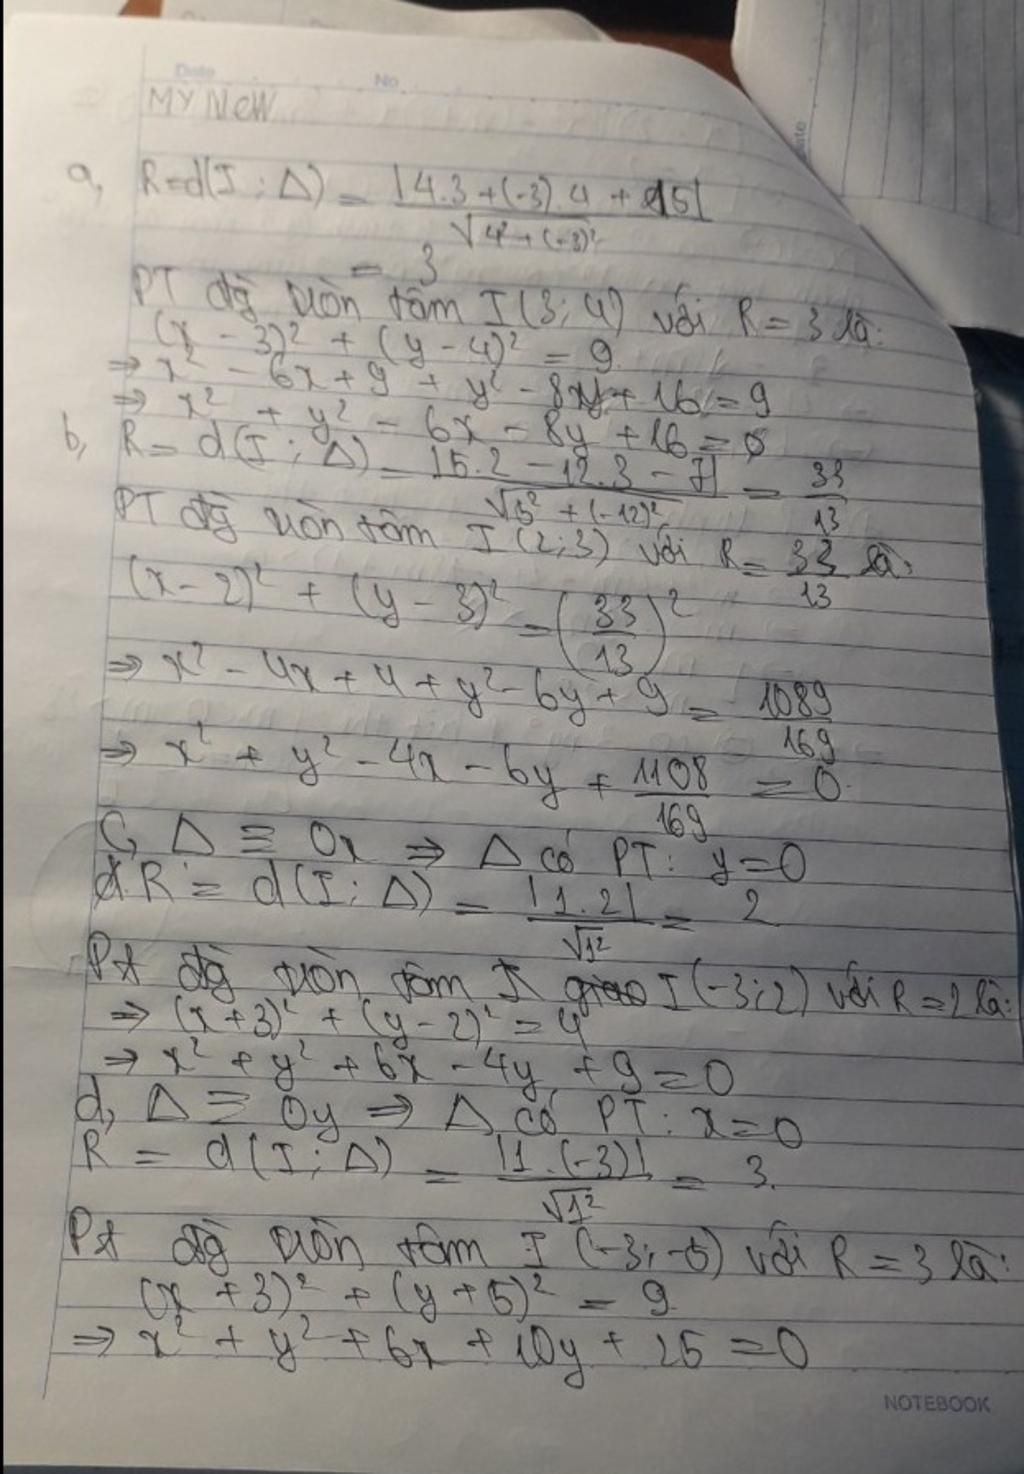 Date No
MY NeW
a, R=d(I;Δ) = |4.3+(-3).4+15| / √4²+(-3)²
= 3
PT đg tròn tâm I(3;4) với R=3 là:
(x-3)² + (y-4)² = 9
⇒ x² - 6x + 9 + y² - 8y + 16 = 9
⇒ x² + y² - 6x - 8y + 16 = 0
b, R = d(I;Δ) = |5.2 - 12.3 - 7| / √5² + (-12)² = 33/13
PT đg tròn tâm I(2;3) với R = 33/13 là:
(x-2)² + (y-3)² = (33/13)²
⇒ x² - 4x + 4 + y² - 6y + 9 = 1089/169
⇒ x² + y² - 4x - 6y + 1108/169 = 0
C, Δ ≡ Ox ⇒ Δ có PT: y=0
R = d(I;Δ) = |1.2| / √1² = 2
Pt đg tròn tâm I(-3;2) với R=2 là:
⇒ (x+3)² + (y-2)² = 4
⇒ x² + y² + 6x - 4y + 9 = 0
d, Δ ≡ Oy ⇒ Δ có PT: x=0
R = d(I;Δ) = |1.(-3)| / √1² = 3.
Pt đg tròn tâm I (-3;-5) với R=3 là:
(x+3)² + (y+5)² = 9
⇒ x² + y² + 6x + 10y + 25 = 0
NOTEBOOK